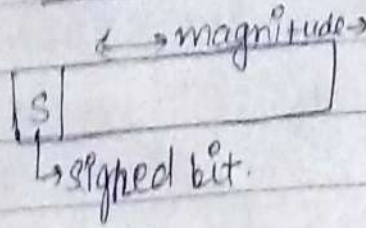 magnitude
S
signed bit.